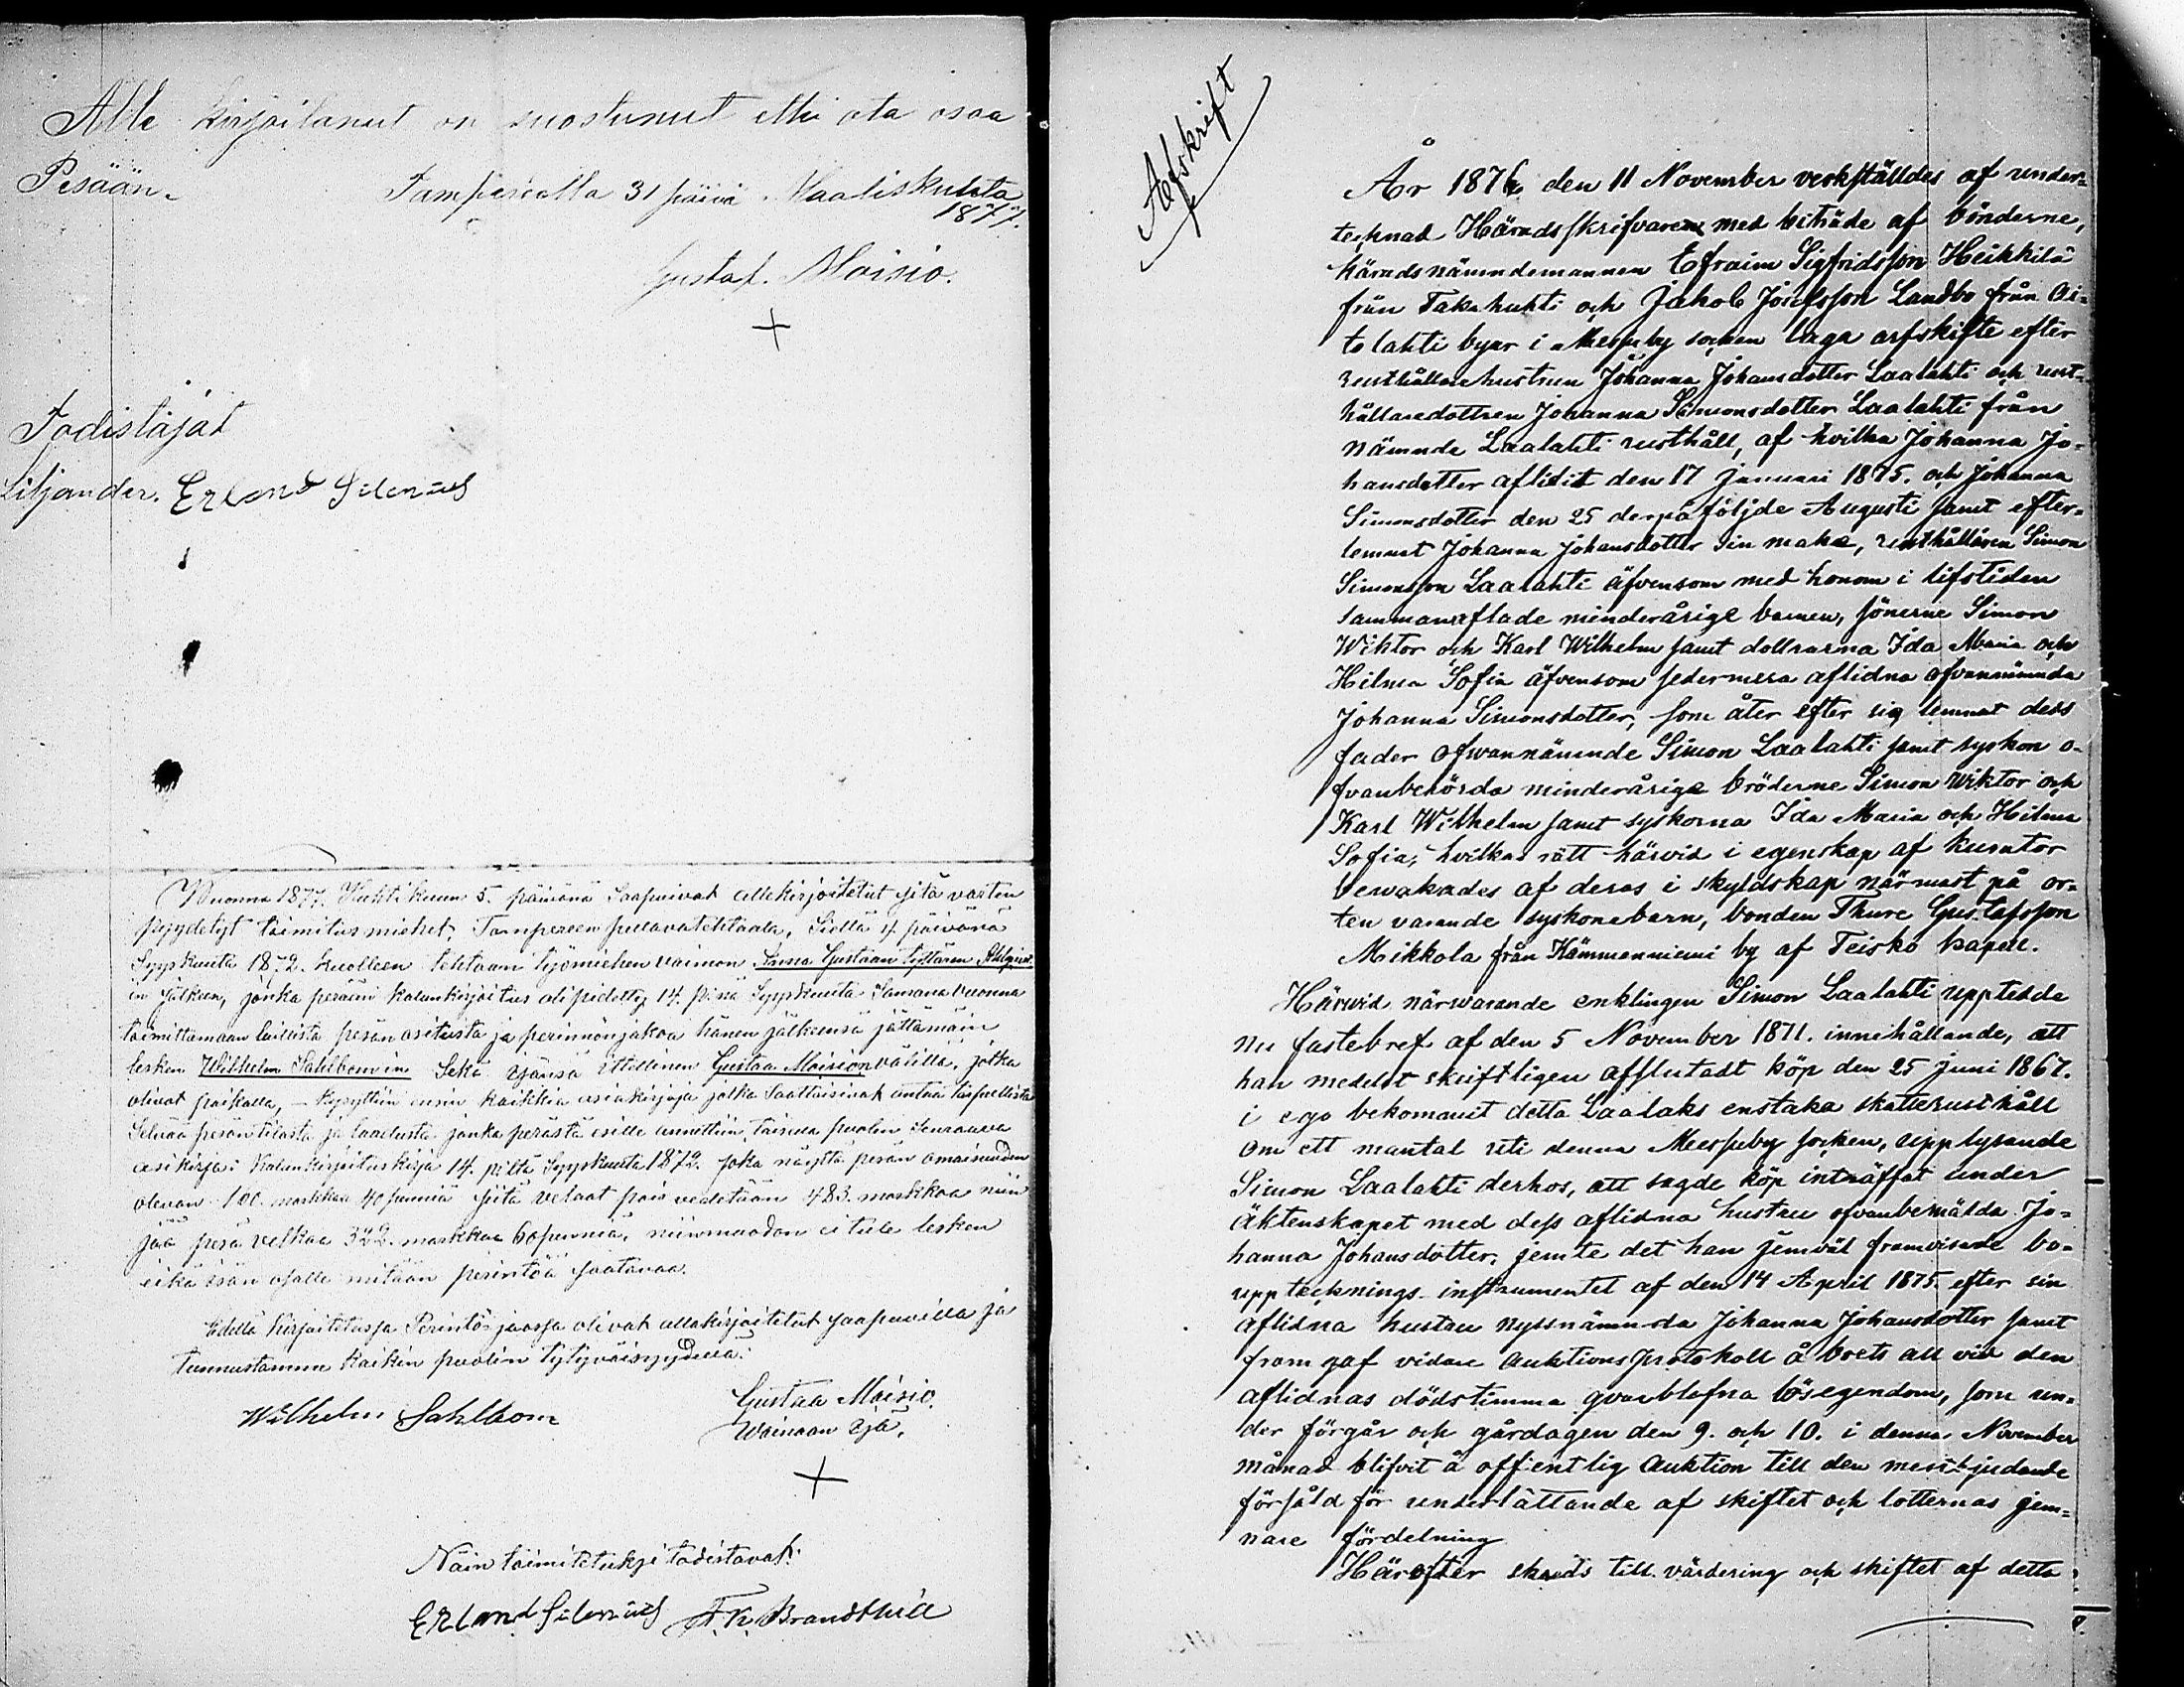 Alle kirjoitanut on suostunut ettei ota osaa
Pesään.
Tampereella 31 päivä Maaliskuuta
1877.
Gustaf. Moisio.
+
Todistajat
Liljander. Erland Silenius
Vuonna 1877. Huhtikuun 5. päivänä Saapuivat allekirjoitetut sitä varten
pyydetyt toimitusmiehet, Tampereen pellavatehtaala, Siellä 4 päivänä
Syyskuuta 1872. kuolleen tehtaan työmiehen vaimon Anna Gustaan tyttären
in jälkeen, jonka perään kalunkirjoitus oli pidetty 14. p:nä Syyskuuta Samana vuonna
toimittamaan laillista pesän ositusta ja perinnönjakoa hänen jälkeensä jättämäin
lesken Wilhelm Sahlbomin Sekä isänsä ittellinen Gustaa Moision välillä, jotka
olivat paikalla, – kysyttiin ensin kaikkia asiakirjoja jotka Saattaisivat antaa täydellistä
Selvää pesän tilasta ja laadusta jonka perästä esille annettiin, toisella puolen Seuraava
asikirja: Kalunkirjoituskirja 14. p:ltä Syyskuuta 1872. joka näyttä pesän omaisuuden
olevan 160. markkaa 40 penniä siitä velaat pois vedetään 483. markkaa niin
jää pesä velkaa 322. markkaa 60 penniä, niinmuodon ei tule lesken
eikä isän osalle mitään perintöä saatavaa.
Edellä kirjoitetussa Perintö-jaossa olivat allakirjoitetut saapuvilla ja
tunnustamme kaikin puolin tytyväisyydellä:
Wilhelm Sahlbom
Gustaa Moisio.
Wainaan isä.
+
Näin toimitetuksi todistavat:
Erland Silenius F. K. Brandthill
Afskrift
År 1876 den 11 November verkställdes af under-
tecknad Häradsskrifvaren med biträde af bönderne,
häradsnämndemannen Efraim Sigfridsson Heikkilä
från Takahuhti och Jakob Josefsson Landbo från Ai-
tolahti byar i Messuby socken laga arfskifte efter
rusthållarehustrun Johanna Johansdotter Laalahti och rust-
hållaredottren Johanna Simonsdotter Laalahti från
nämnde Laalahti rusthåll, af hvilka Johanna Jo-
hansdotter aflidit den 17 Januari 1875. och Johanna
Simonsdotter den 25 derpåföljde Augusti samt efter-
lemnat Johanna Johansdotter sin make, rusthållaren Simon
Simonsson Laalahti äfvensom med honom i lifstiden
sammanaflade minderårige barnen, sönerne Simon
Wiktor och Karl Wilhelm samt döttrarna Ida Maria och
Hilma Sofia äfvensom sedermera aflidna ofvannämnda
Johanna Simonsdotter, som åter efter sig lemnat dess
fader ofvannämnde Simon Laalahti samt syskon o-
fvanberörda minderåriga bröderne Simon Wiktor och
Karl Wilhelm samt syskorna Ida Maria och Hilma
Sofia, hvilkas rätt härvid i egenskap af kurator
bewakades af deras i skyldskap närmast på or-
ten varande syskonebarn, bonden Thure Gustafsson
Mikkola från Kämmenniemi by af Teisko kapell.
Härwid närwarande enklingen Simon Laalahti upptedde
nu fastebref af den 5 November 1871. innehållande, att
han medelst skriftligen afslutadt köp den 25 Juni 1867.
i ego bekommit detta Laalaks enstaka skatterusthåll
om ett mantal uti denna Messuby socken, upplysande
Simon Laalahti derhos, att sagde köp inträffat under
äktenskapet med dess aflidna hustru ofvanbemälda Jo-
hanna Johansdotter, jemte det han jemväl framvisade bo-
upptecknings-instrumentet af den 14 April 1875 efter sin
aflidna hustru nyssnämnda Johanna Johansdotter samt
framgaf vidare auktionsprotokoll å boets all vid den
aflidnas dödstimma qvarblefna lösegendom, som un-
der förgår och gårdagen den 9. och 10. i denna November
månad blifvit å offentlig auktion till den mestbjudande
försåld för underlättande af skiftet och lotternas jem-
nare fördelning
Härefter skreds till värdering och skiftet af detta